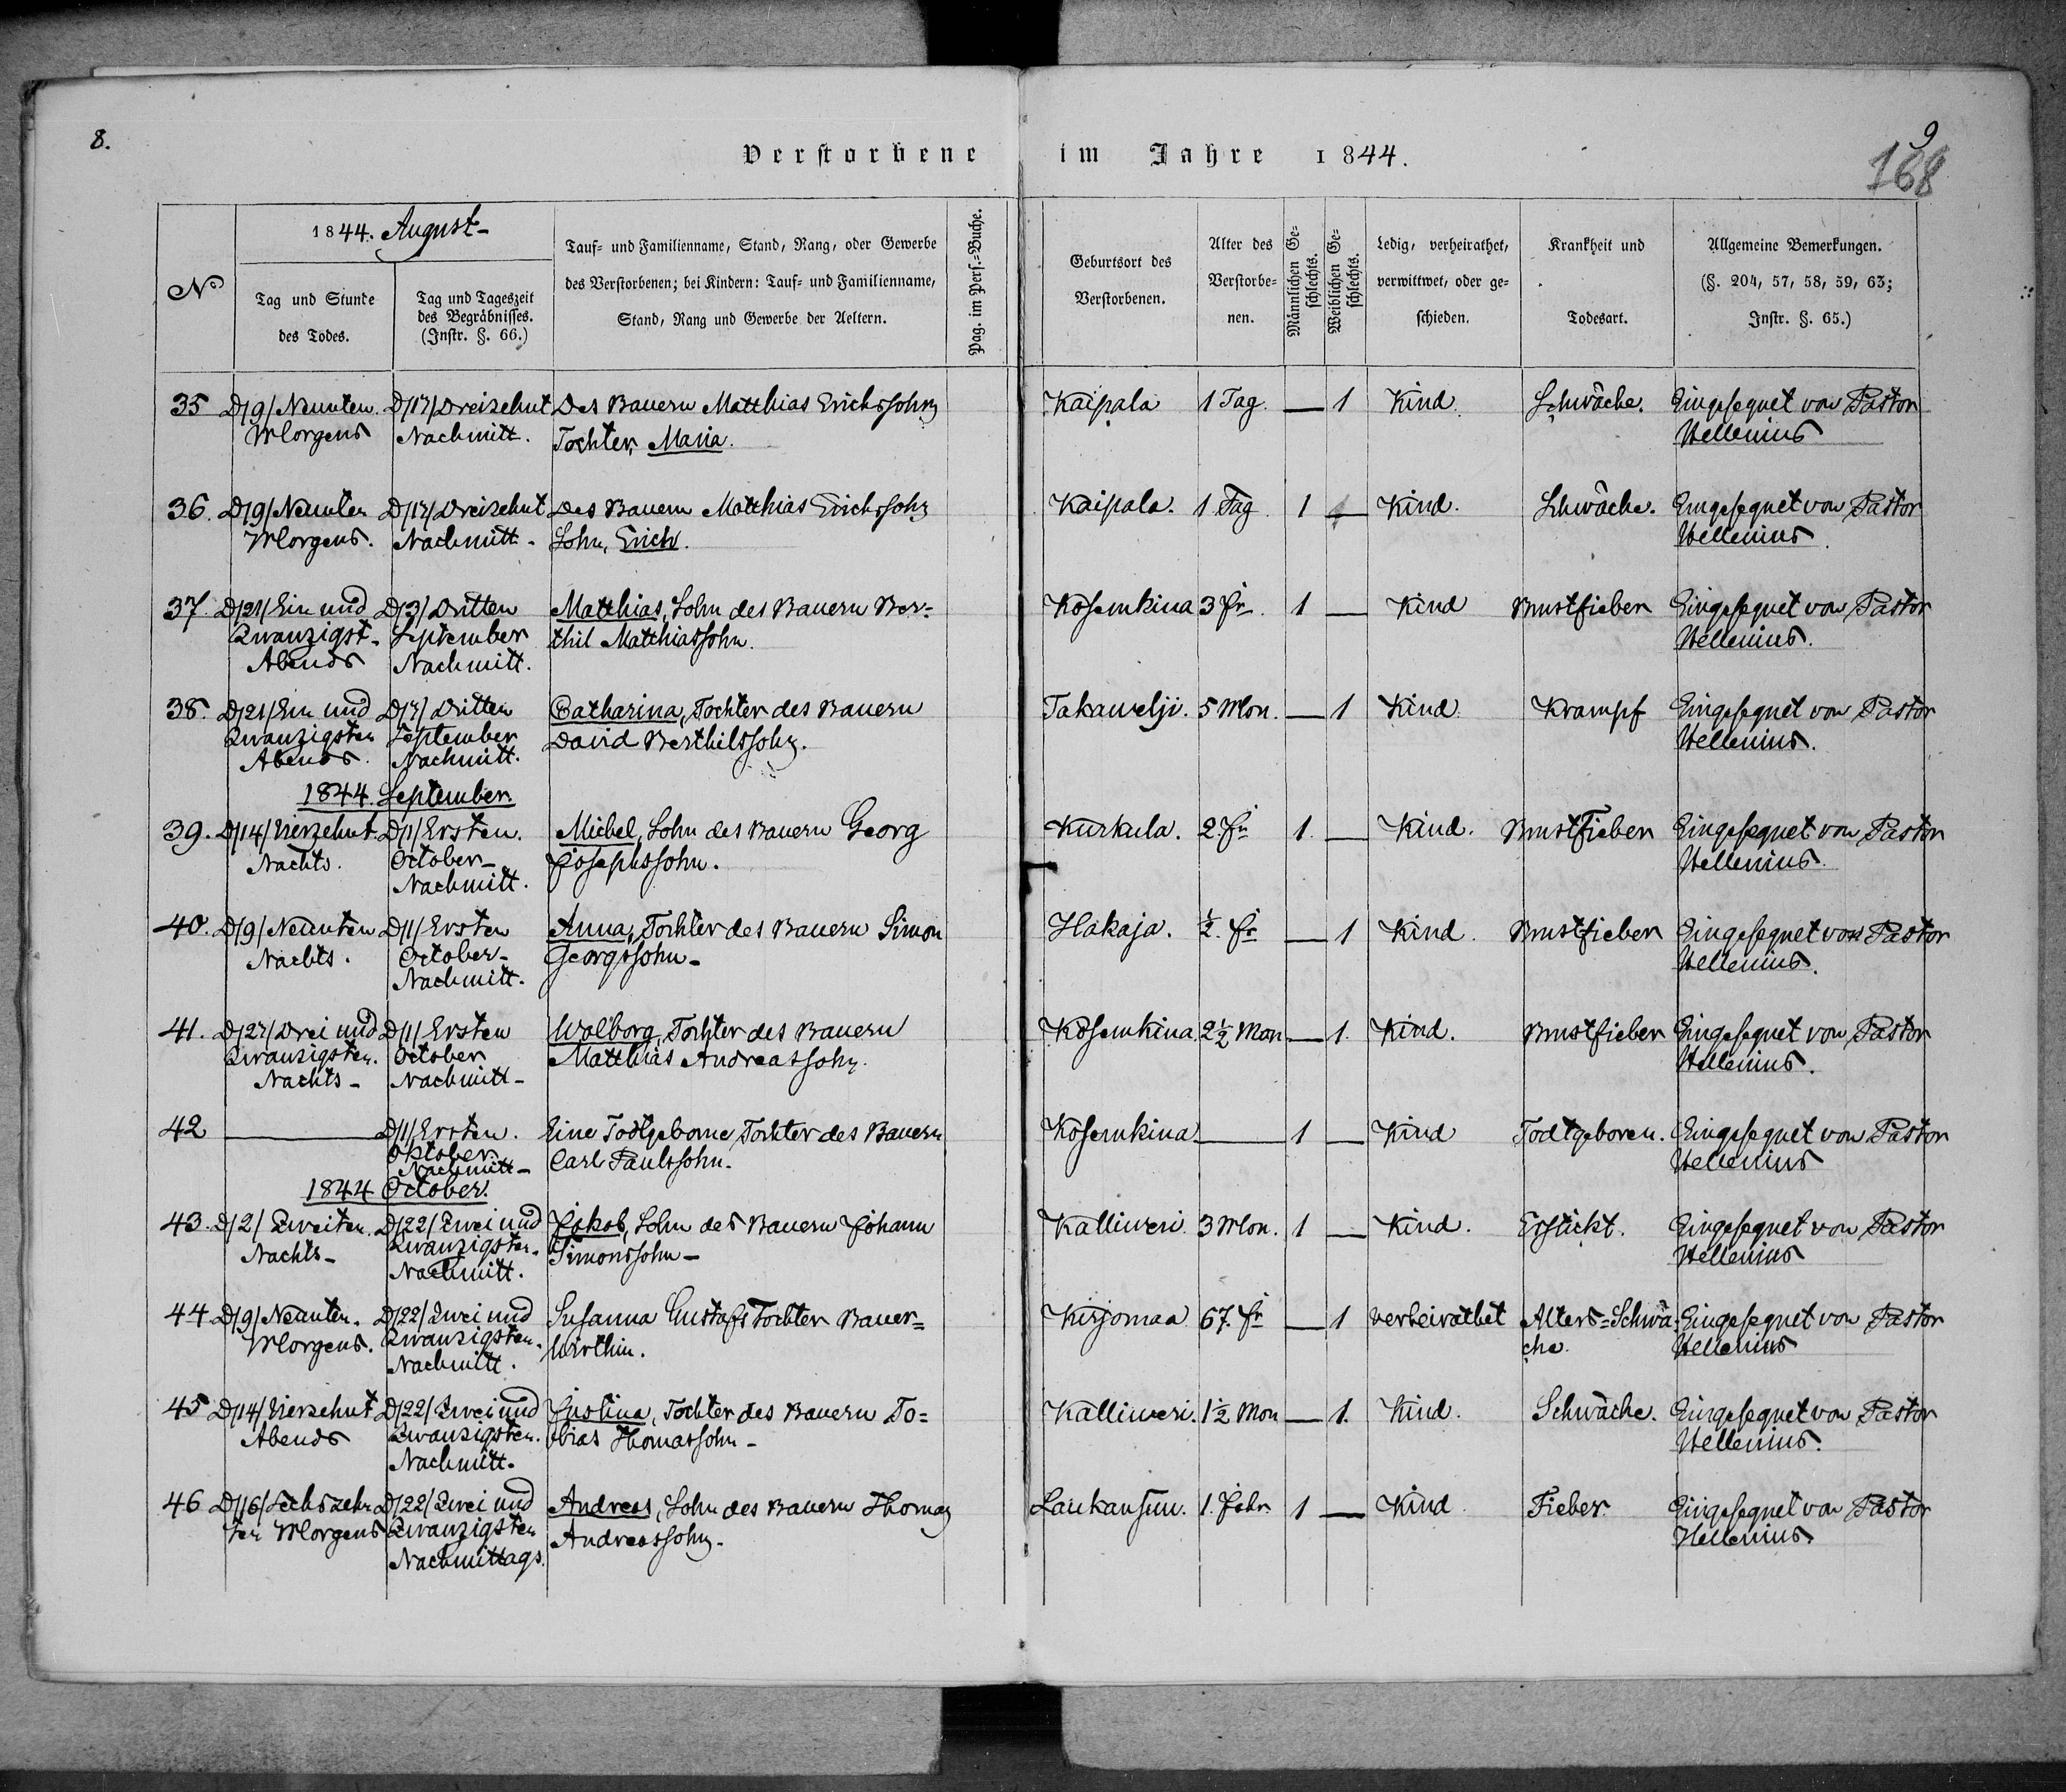 8.
9
168
Verstorbene im Jahre 1844.
No
1844. August
Tag und Stunde
des Todes.
Tag und Tageszeit
des Begräbnisses.
(Instr. §. 66.)
Tauf- und Familienname, Stand, Rang, oder Gewerbe
des Verstorbenen; bei Kindern: Tauf- und Familienname,
Stand, Rang und Gewerbe der Aeltern.
Pag. im Pers.-Buche.
Geburtsort des
Verstorbenen.
Alter des
Verstorbe-
nen.
Männlichen Ge-
schlechts.
Weiblichen Ge-
schlechts.
Ledig, verheirathet,
verwittwet, oder ge-
schieden.
Krankheit und
Todesart.
Allgemeine Bemerkungen.
(§. 204, 57, 58, 59, 63;
Instr. §. 65.)
35 D/9/ Neunten. D/13/ Dreizehnt Des Bauern Matthias Erichssohn Kaipala 1 Tag. — 1 Kind. Schwäche. Eingesegnet von Pastor
Morgens Nachmitt. Tochter, Maria. Hellenius
36. D/9/ Neunten D/13/ Dreizehnt Des Bauern Matthias Erichssohn Kaipala. 1 Tag 1 — Kind. Schwäche. Eingesegnet von Pastor
Morgens. Nachmitt. Sohn, Erich. Hellenius.
37. D/21/ Ein und D/3/ Dritten Matthias, Sohn des Bauern Ber= Kosemkina 3 Jr. 1 — Kind Brustfieber Eingesegnet von Pastor
Zwanzigst. September thil Matthiassohn. Hellenius.
Abends Nachmitt.
38. D/21/ Ein und D/3/ Dritten Catharina, Tochter des Bauern Takawelji. 5 Mon. — 1 Kind. Krampf Eingesegnet von Pastor
Zwanzigsten September David Berthilssohn. Hellenius.
Abends. Nachmitt.
1844. September.
39. D/14/ Vierzehnt. D/1/ Ersten. Michel, Sohn des Bauern Georg Kurkula. 2. Jr 1. — Kind. Brustfieber Eingesegnet von Pastor
Nachts. October Josephssohn. Hellenius.
Nachmitt.
40. D/9/ Neunten D/1/ Ersten Anna, Tochter des Bauern Simon Hakaja. ½. Jr — 1 Kind. Brustfieber Eingesegnet von Pastor
Nachts. October Georgssohn. Hellenius.
Nachmitt.
41. D/23/ Drei und D/1/ Ersten Walborg, Tochter des Bauern Kosemkina 2½ Mon — 1. Kind. Brustfieber Eingesegnet von Pastor
Zwanzigsten. October Matthias Andreassohn. Hellenius.
Nachts Nachmitt
42 — D/1/ Ersten. Eine Todtgeborne Tochter des Bauern Kosemkina — 1 — Kind Todtgeboren. Eingesegnet von Pastor
Oktober. Carl Paulssohn. Hellenius
Nachmitt
1844 October.
43. D/2/ Zweiten. D/22/ Zwei und Jakob, Sohn des Bauern Johann Kalliweri 3 Mon. 1 — Kind. Erstickt. Eingesegnet von Pastor
Nachts Zwanzigsten Simonssohn Hellenius
Nachmitt.
44. D/9/ Neunten. D/22/ Zwei und Susanna Gustafs Tochter Bauer= Kirjomaa 67. Jr — 1 verheirathet Alters=Schwä- Eingesegnet von Pastor
Morgens. Zwanzigsten. Wirthin. che. Hellenius
Nachmitt.
45 D/14/ Vierzehnt D/22/ Zwei und Justina, Tochter des Bauern To= Kalliweri. 1½ Mon — 1. Kind. Schwäche. Eingesegnet von Pastor
Abends Zwanzigsten. bias Thomassohn Hellenius.
Nachmitt.
46 D/16/ Sechszehn D/22/ Zwei und Andreas, Sohn des Bauern Thomas Laukansuu. 1. Jahr 1 — Kind Fieber. Eingesegnet von Pastor
ten Morgens Zwanzigsten Andreassohn. Hellenius.
Nachmittags.